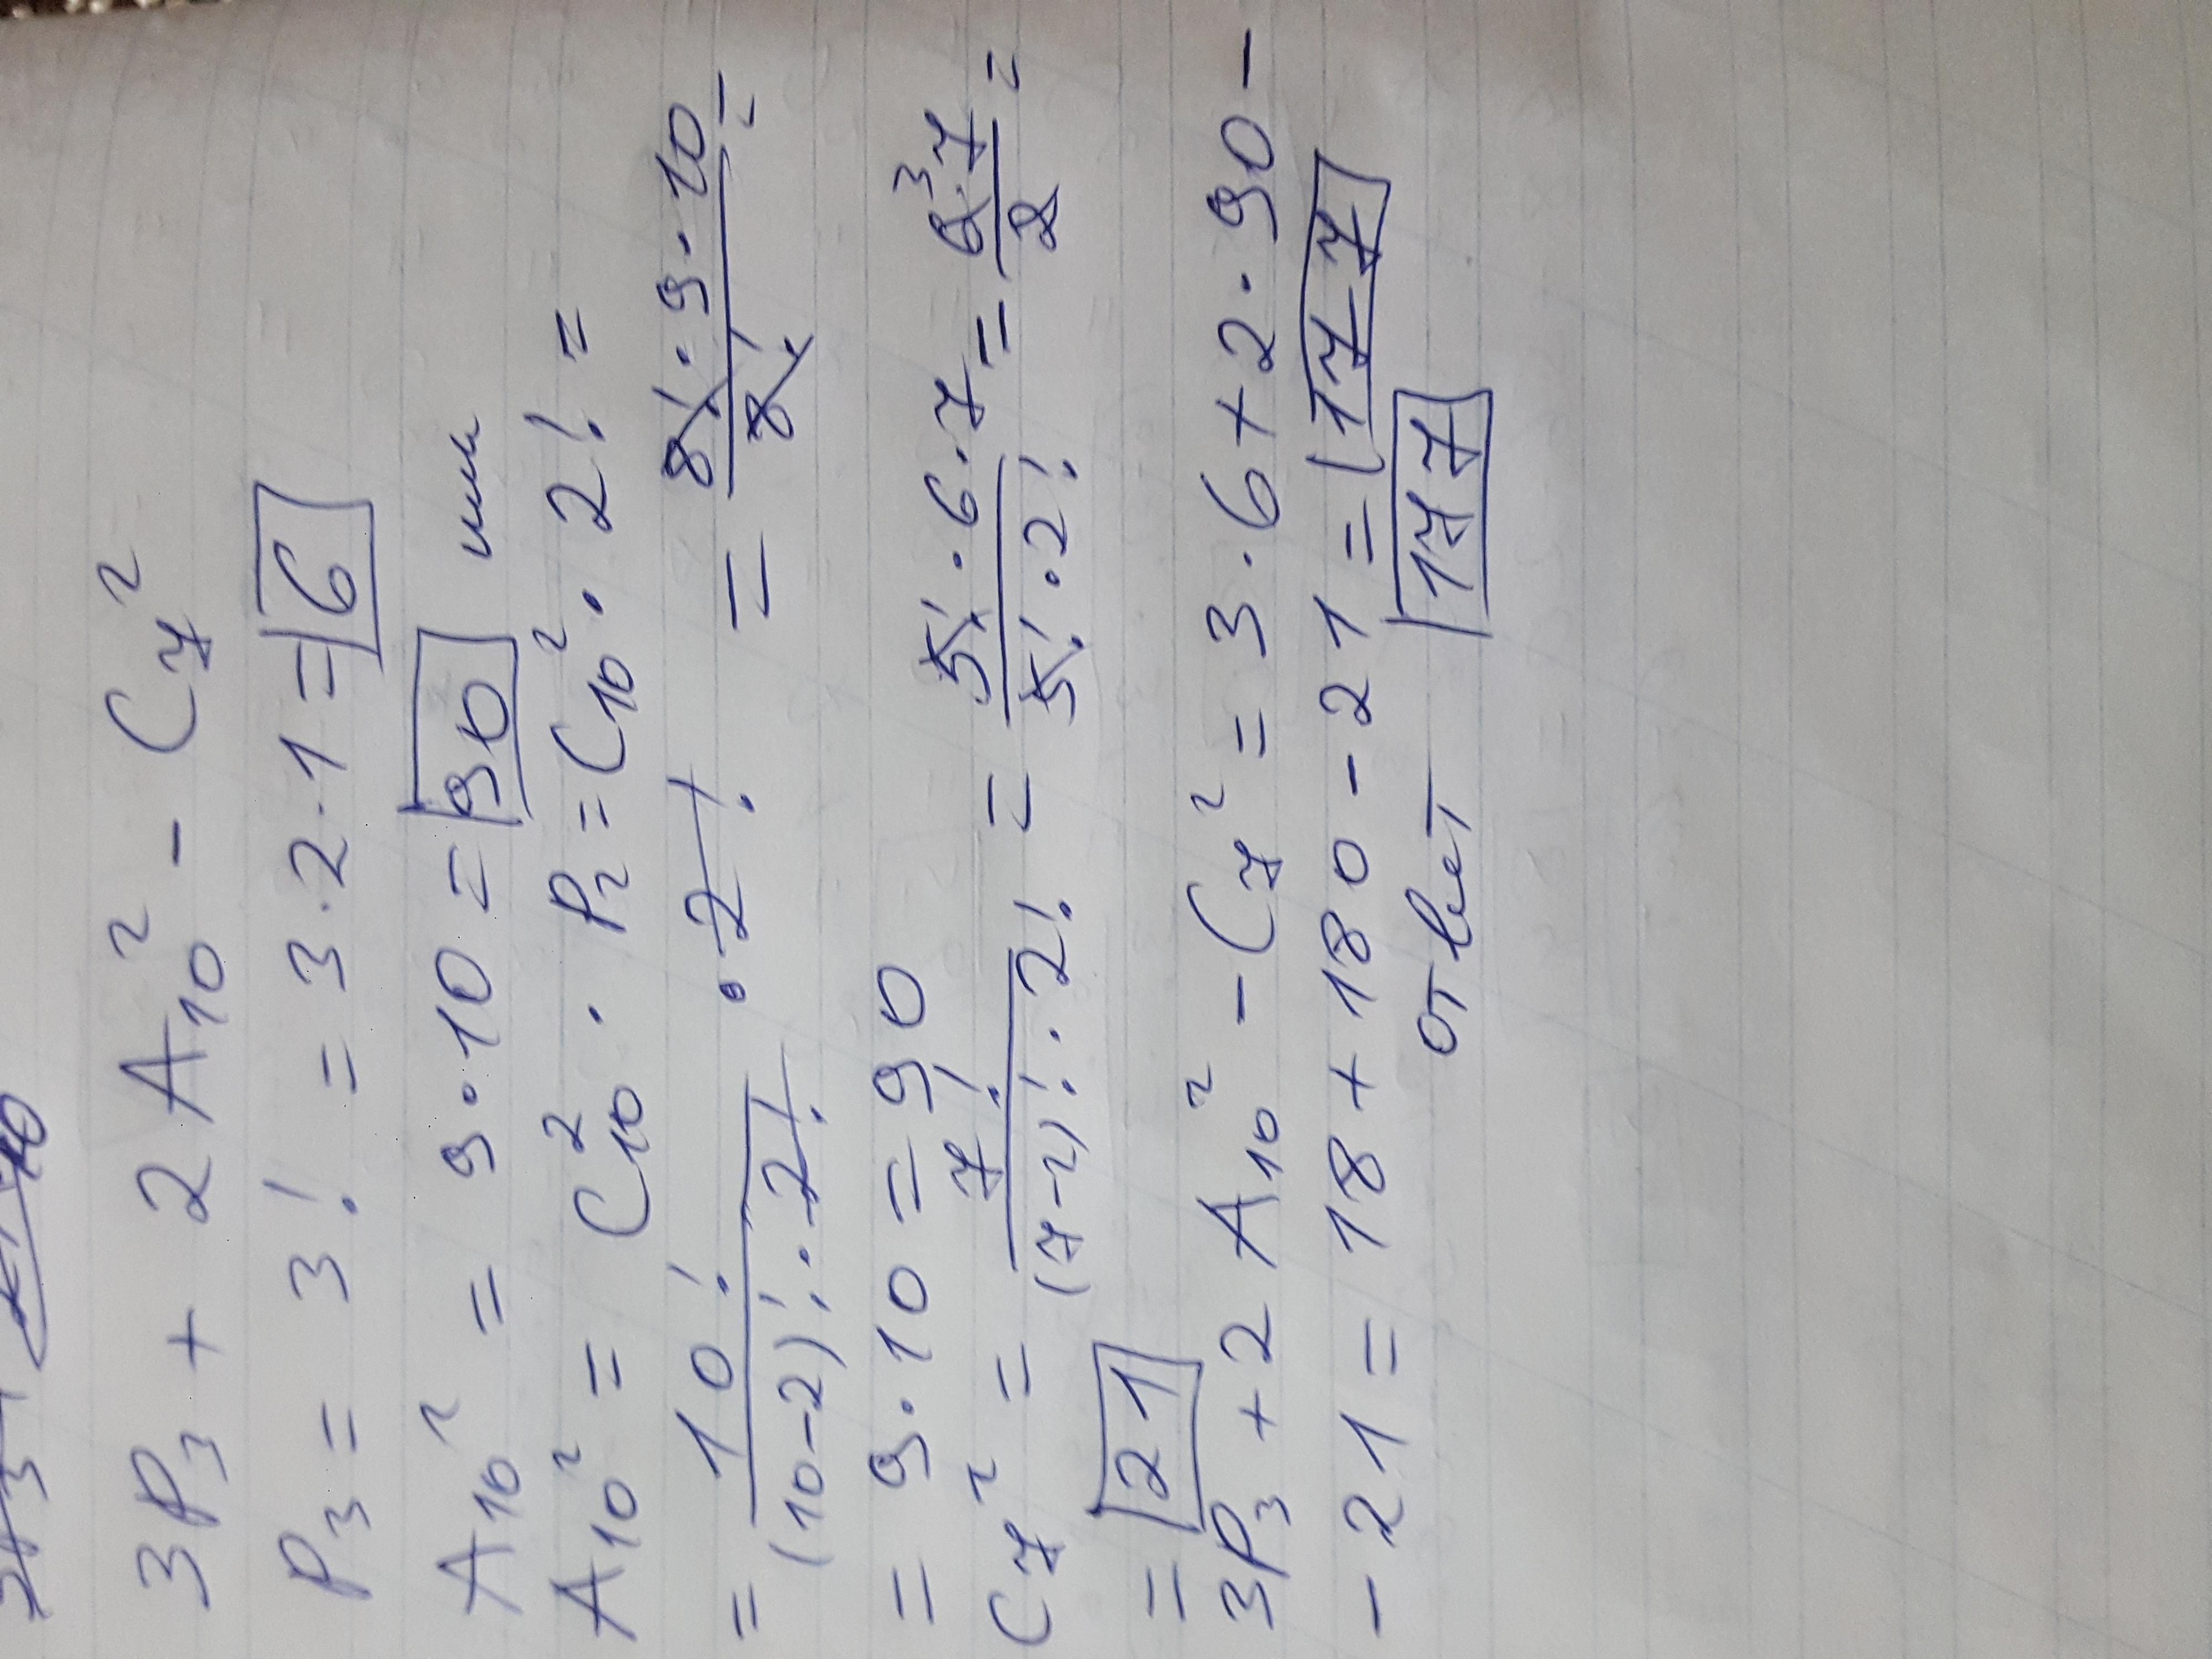 3P₃ + 2A₁₀² - C₇²
P₃ = 3! = 3·2·1 = 6
A₁₀² = 9·10 = 90 или
A₁₀² = C₁₀² · P₂ = C₁₀² · 2! =
= 10!/((10-2)!·2!) · 2! = 8!·9·10/8! =
= 9·10 = 90
C₇² = 7!/((7-2)!·2!) = 5!·6·7/(5!·2!) = 6³·7/2 =
= 21
3P₃ + 2A₁₀² - C₇² = 3·6 + 2·90 -
- 21 = 18 + 180 - 21 = 177
ответ 177